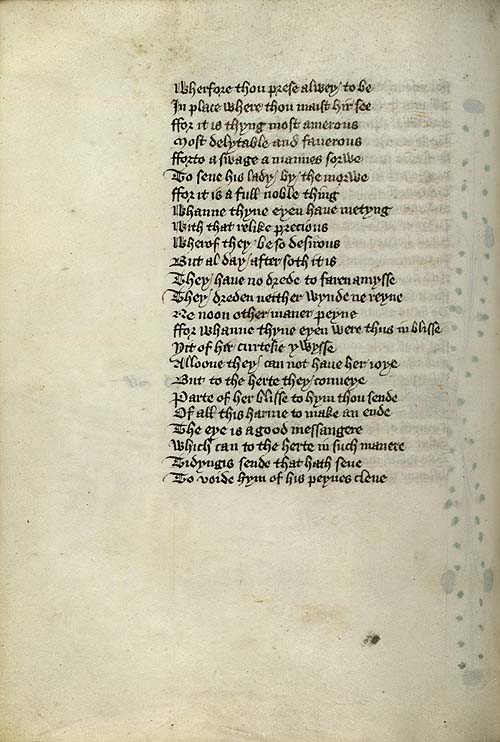 Wherfore thou prese alwey to be
In place where thou maist hir see
ffor it is thyng most amerous
Most delytable and fauerous
fforto a swage a mannes sorwe
To sene his lady by the morwe
ffor it is a full noble thing
Whanne thyne eyen haue metyng
With that relike precious
Wherof they be so desirous
But al day after soth it is
They haue no drede to faren amysse
They dreden neither wynde ne reyne
Ne noon other maner peyne
ffor whanne thyne eyen were thus in blisse
Yit of hir curtesie ywysse
Alloone they can not haue her ioye
But to the herte they conueye
Parte of her blisse to hym thou sende
Of all this harme to make an ende
The eye is a good messangere
Which can to the herte in such manere
Tidyngis sende that hath sene
To voide hym of his peynes clene